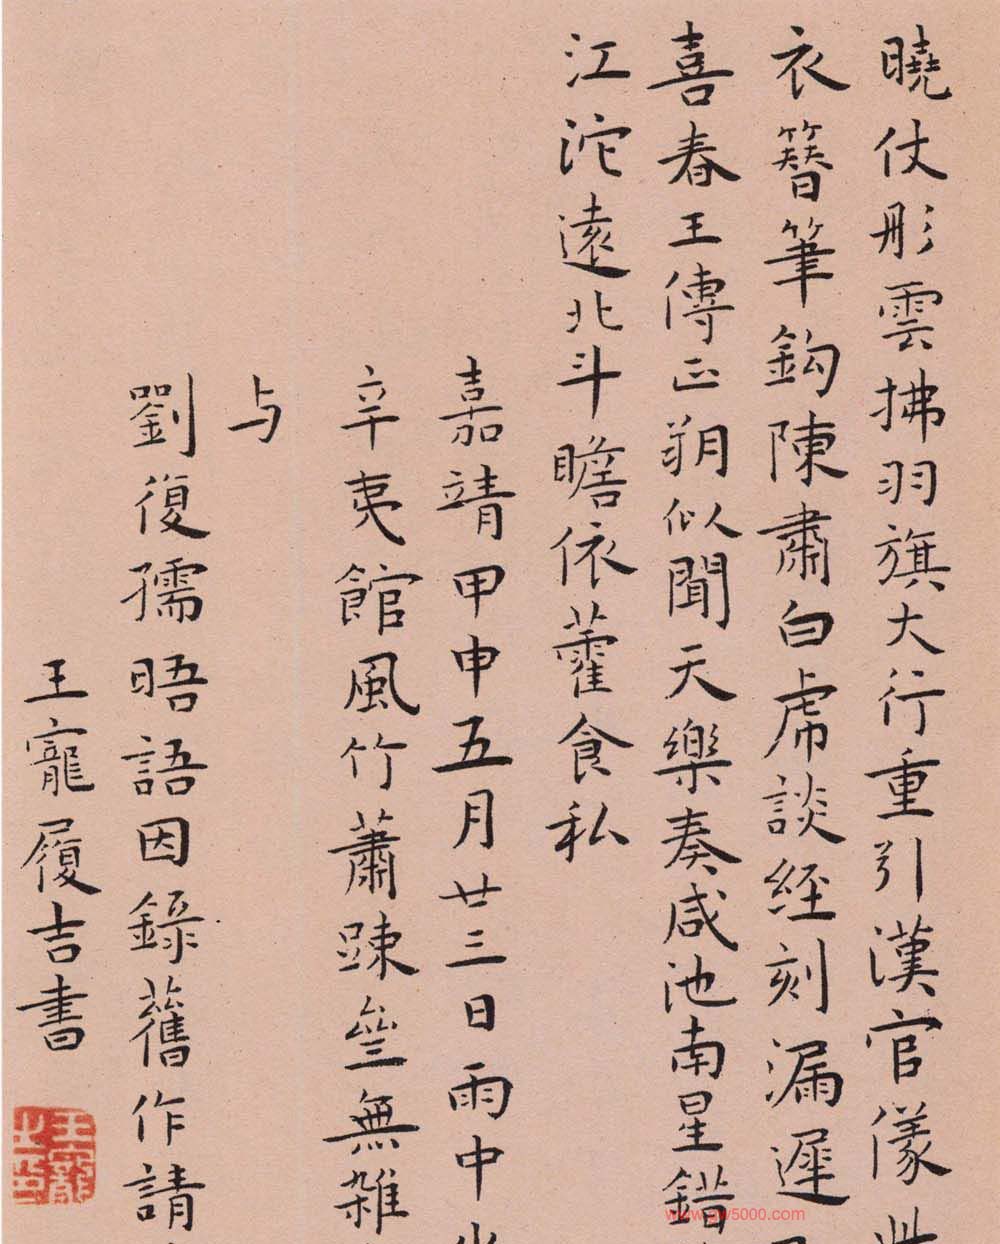 曉仗彤雲拂羽旗大行重引漢官儀
衣簪筆鈎陳肅白虎談經刻漏遲
喜春王傳正朔似聞天樂奏咸池南星錯
江沱遠北斗瞻依藿食私
嘉靖甲申五月廿三日雨中
辛夷館風竹蕭踈坐無雜
与
劉復孺晤語因錄舊作請
王寵履吉書
王寵之印
www.gw5000.com